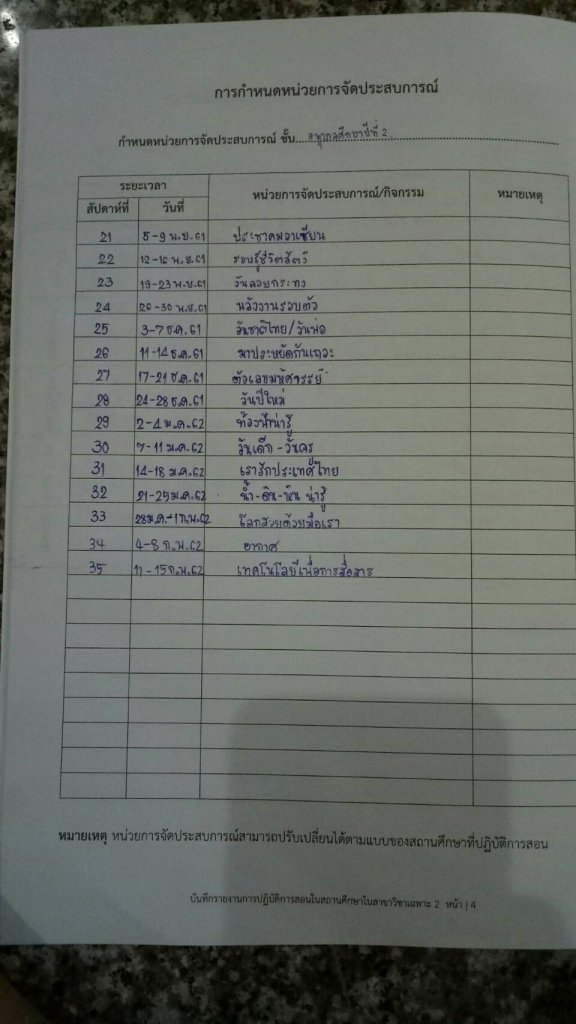 การกำหนดหน่วยการจัดประสบการณ์
กำหนดหน่วยการจัดประสบการณ์ ชั้น....อนุบาลศึกษาปีที่ 2....
ระยะเวลา หน่วยการจัดประสบการณ์/กิจกรรม หมายเหตุ
สัปดาห์ที่ วันที่
21 5-9 พ.ย.61 ประชาคมอาเซียน
22 12-16 พ.ย.61 รอบรู้ชีวิตสัตว์
23 19-23 พ.ย.61 วันลอยกระทง
24 26-30 พ.ย.61 พลังงานรอบตัว
25 3-7 ธ.ค.61 วันชาติไทย/วันพ่อ
26 11-14 ธ.ค.61 มาประหยัดกันเถอะ
27 17-21 ธ.ค.61 ตัวเลขมหัศจรรย์
28 24-28 ธ.ค.61 วันปีใหม่
29 2-4 ม.ค.62 ท้องฟ้าน่ารู้
30 7-11 ม.ค.62 วันเด็ก-วันครู
31 14-18 ม.ค.62 เรารักประเทศไทย
32 21-25 ม.ค.62 น้ำ-ดิน-หิน น่ารู้
33 28 ม.ค.-1 ก.พ.62 โลกสวยด้วยมือเรา
34 4-8 ก.พ.62 อากาศ
35 11-15 ก.พ.62 เทคโนโลยีเพื่อการสื่อสาร
หมายเหตุ หน่วยการจัดประสบการณ์สามารถปรับเปลี่ยนได้ตามแบบของสถานศึกษาที่ปฏิบัติการสอน
บันทึกรายงานการปฏิบัติการสอนในสถานศึกษาในสาขาวิชาเฉพาะ 2 หน้า | 4